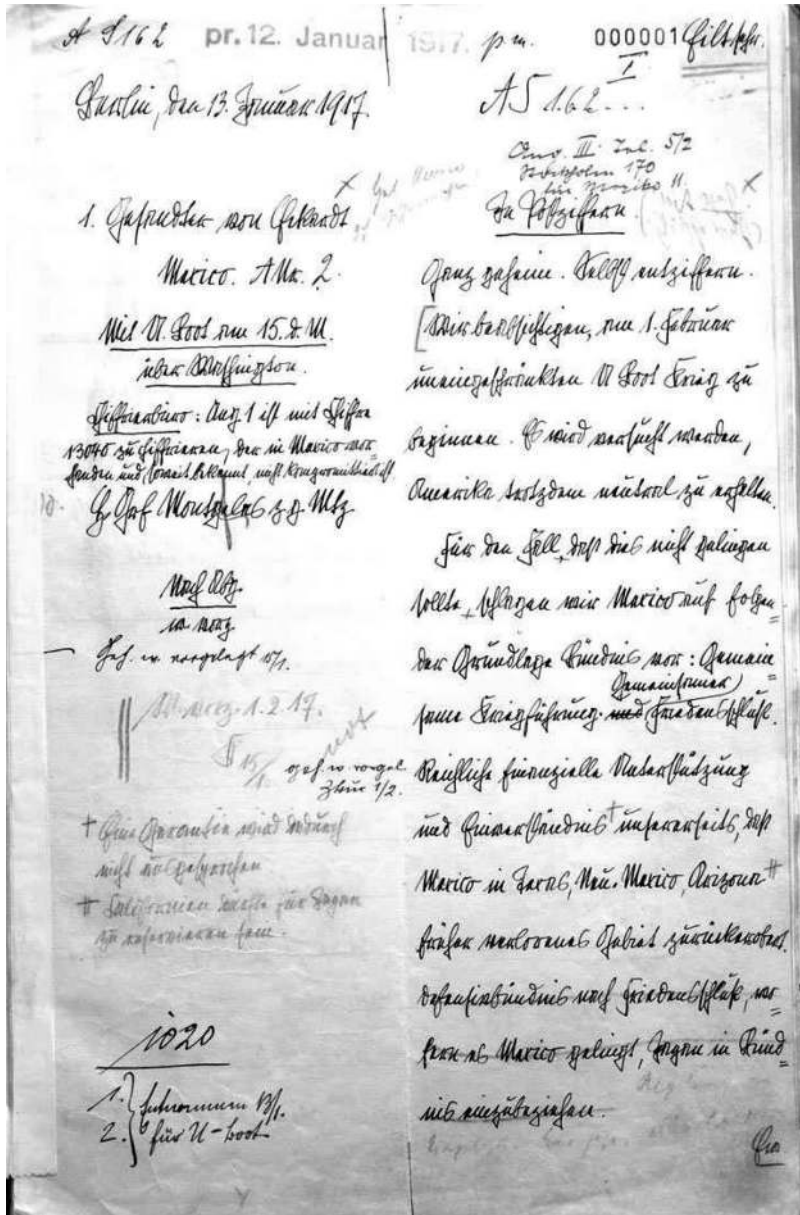 A S 162 pr. 12. Januar 1917. p.m. 000001 Eilt sehr.
I
Berlin, den 13. Januar 1917.
A S 162...
Ang. III. Tel. 5/2
Stockholm 170
für Mexiko 11.
1. Gesandter von Eckardt
Mexico. A No. 2.
Mit U. Boot am 15. d. M.
über Washington.
Chiffrierbüro: Ang 1 ist mit Chiffre
13040 zu chiffrieren, der in Mexico vor=
handen und soweit bekannt, nicht kompromittiert ist.
H. Graf Montgelas z. g. Mtz
Nach Abg.
w. vorg.
Geh. w. vorgelegt 15/1.
W. vorg. 1.2.17.
15/1.
geh. w. vorgel.
1/2.
+ Eine Garantie wird dadurch
nicht ausgesprochen
# Californien dürfte für Japan
zu reservieren sein.
1020
1.
2. für U-Boot
In Ziffern.
Ganz geheim. Selbst entziffern.
[Wir beabsichtigen, am 1. Februar
uneingeschränkten U Boot Krieg zu
beginnen. Es wird versucht werden,
Amerika trotzdem neutral zu erhalten.
Für den Fall, daß dies nicht gelingen
sollte, schlagen wir Mexico auf folgen=
der Grundlage Bündnis vor: Gemein=
Gemeinsamer
same Kriegführung und Friedensschluß.
Reichliche finanzielle Unterstützung
und Einverständnis + unsererseits, daß
Mexico in Texas, Neu-Mexico, Arizona #
früher verlorenes Gebiet zurückerobert.
Defensivbündnis nach Friedensschluß, wo=
fern es Mexico gelingt, Japan in Bünd=
nis einzubeziehen.